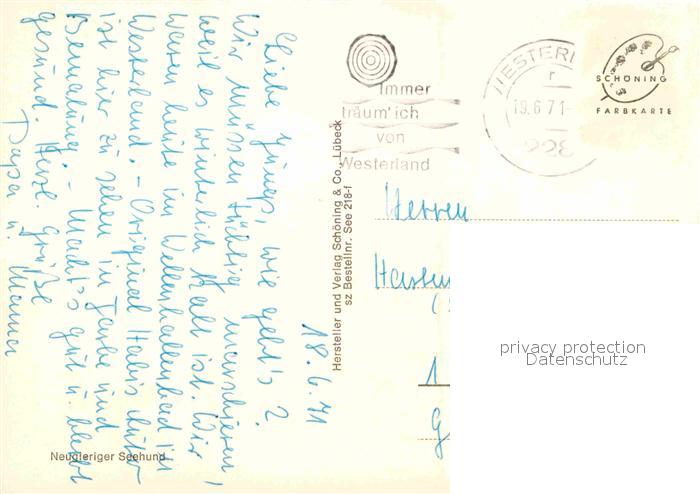 18.6.71
Liebe Jungs, wie geht's?
Wir müssen tüchtig marschieren,
weil es winterlich kalt ist. Wir
waren heute im Wellenhallenbad in
Westerland. - Original
ist hier zu sehen in Farbe und
Bemalung. - Macht's gut u. bleibt
gesund. Herzl. Grüße
Papa u. Mama
Neugieriger Seehund
Hersteller und Verlag Schöning & Co., Lübeck
sz Bestellnr. See 218-f
Immer
träum' ich
von
Westerland
WESTERL
r
19.6.71-
228
SCHÖNING
FARBKARTE
Herren
1
privacy protection
Datenschutz